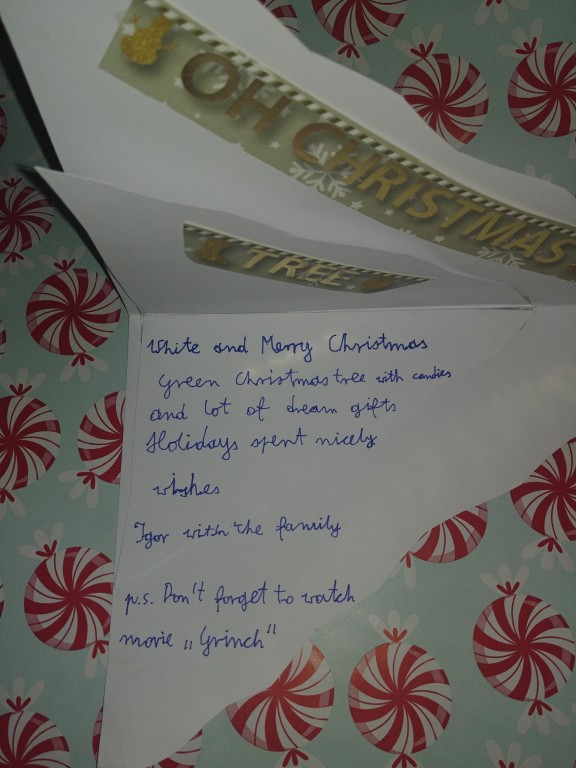 OH CHRISTMAS
TREE
White and Merry Christmas
Green Christmas tree with candies
and lot of dream gifts
Holidays spent nicely
wishes
Igor with the family
p.s. Don't forget to watch
movie „Grinch"